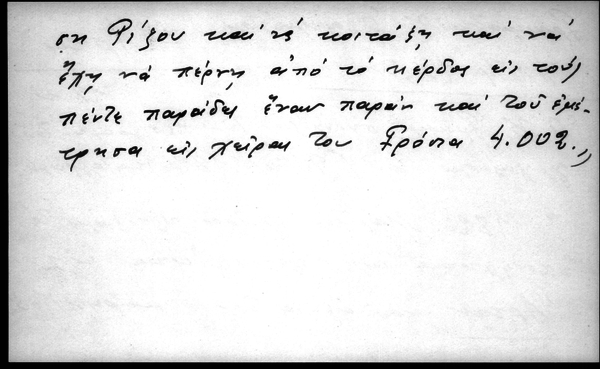 ση Ρίζου καί νά κοιτάξη καί νά
ἔχη νά πέρνη ἀπό τό κέρδος εἰς τούς
πέντε παράδες ἕναν παράν καί τοῦ ἐμέ-
τρησα εἰς χεῖρας του Γρόσια 4.002.,,